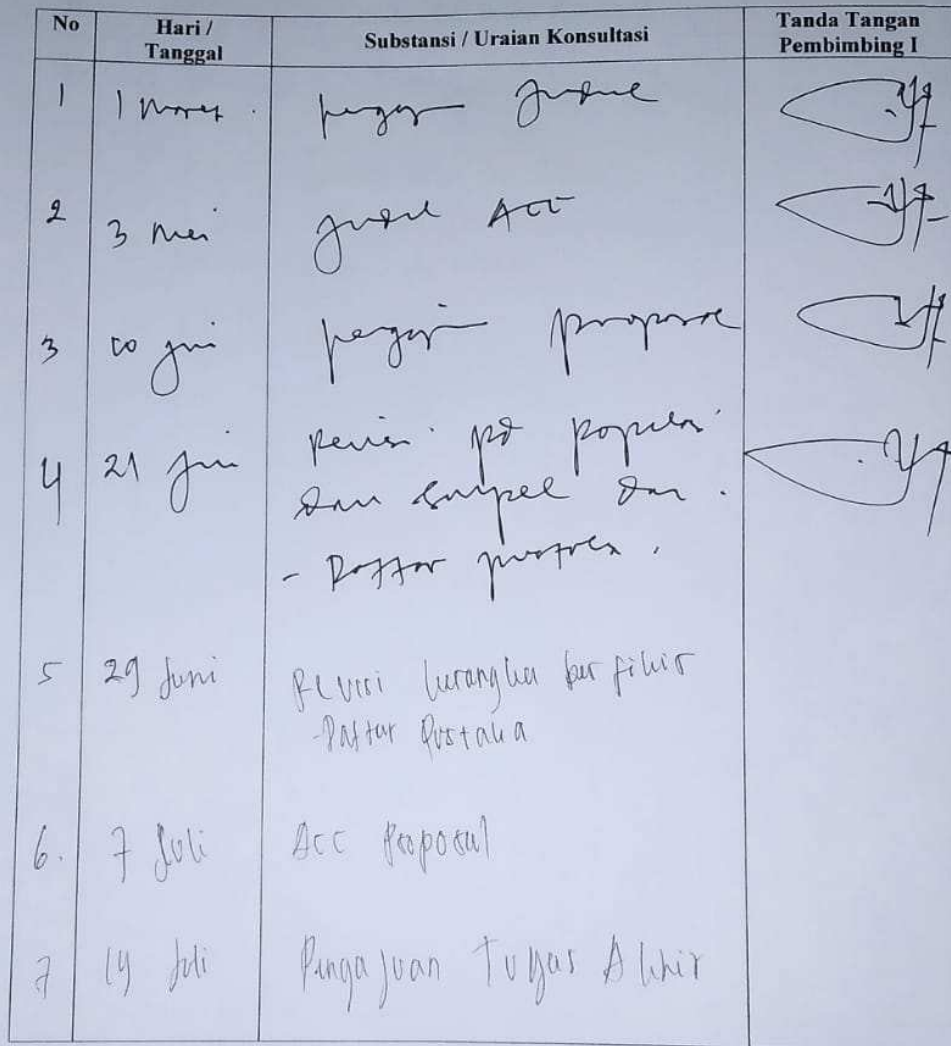 No Hari / Tanggal Substansi / Uraian Konsultasi Tanda Tangan Pembimbing I
1 1 Maret. pengajuan Judul
2 3 Mei Judul ACC
3 10 Juni pengajuan proposal
4 21 Juni Revisi pd populasi
dan sampel dan.
- Daftar pustaka.
5 29 Juni Revisi kerangka ber fikir
- Daftar Pustaka
6. 7 Juli Acc Proposal
7 14 Juli Pengajuan Tugas Akhir